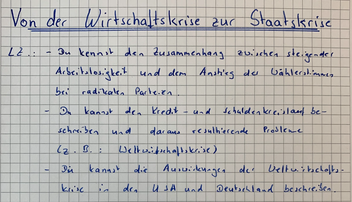 Von der Wirtschaftskrise zur Staatskrise
LZ.: - Du kennst den Zusammenhang zwischen steigender
Arbeitslosigkeit und dem Anstieg der Wählerstimmen
bei radikalen Parteien.
- Du kannst den Kredit- und Schuldenkreislauf be-
schreiben und daraus resultierende Probleme
(z.B.: Weltwirtschaftskrise)
- Du kannst die Auswirkungen der Weltwirtschafts-
krise in den USA und Deutschland beschreiben.